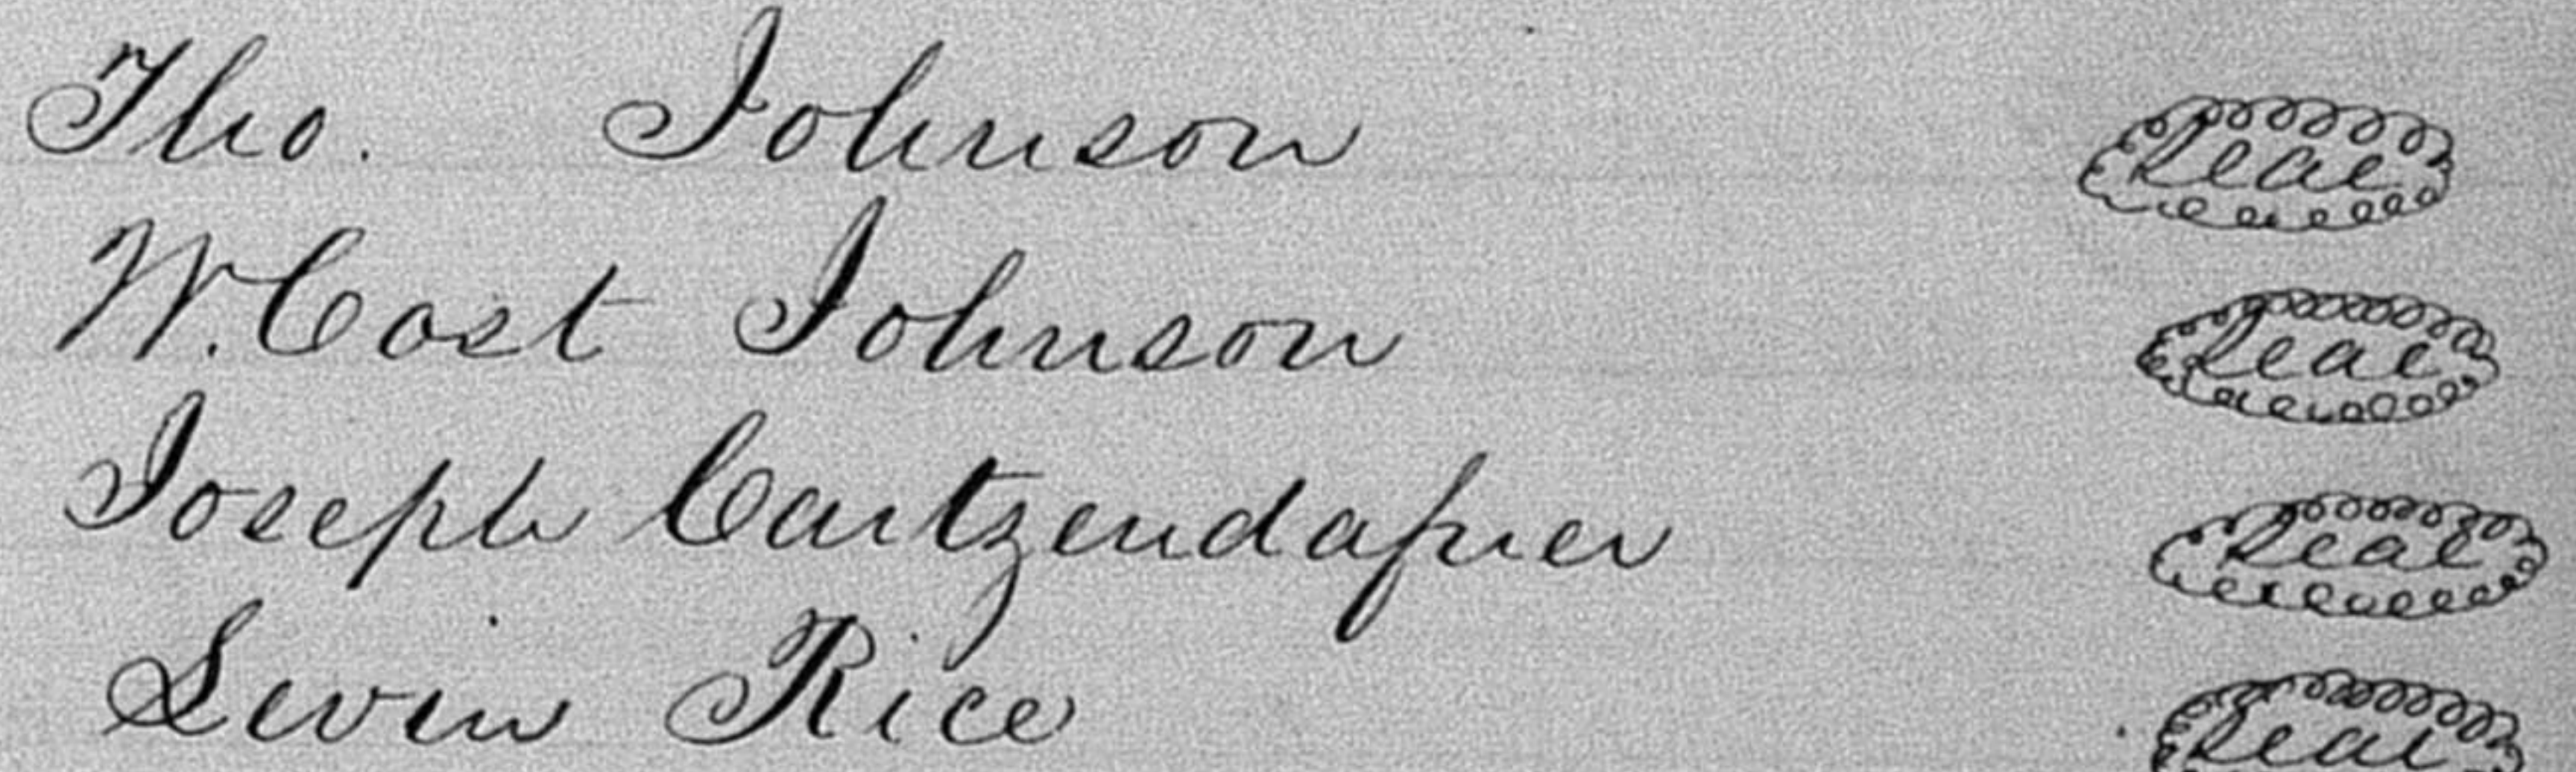 Tho. Johnson Seal
W. Cost Johnson Seal
Joseph Cartzendafner Seal
Levin Rice Seal